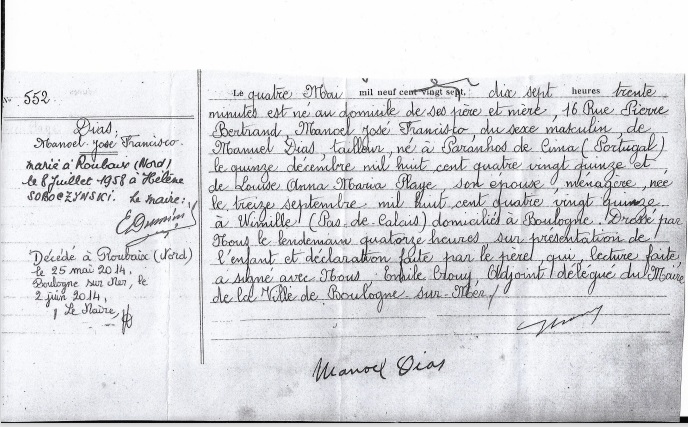 N° 552
Dias,
Manoel José Francisco.
marié à Roubaix (Nord)
le 8 Juillet 1958 à Hélène
SOBOCZYNSKI. Le maire:
Décédé à Roubaix (Nord)
le 25 mai 2014.
Boulogne sur Mer, le
2 juin 2014.
Le Maire,
Le quatre Mai mil neuf cent vingt sept, dix sept heures trente
minutes est né au domicile de ses père et mère, 16 Rue Pierre
Bertrand, Manoel José Francisco, du sexe masculin, de
Manuel Dias, tailleur, né à Paranhos de Cima (Portugal)
le quinze décembre mil huit cent quatre vingt quinze et
de Louise Anna Maria Playe, son épouse ménagère, née
le treize septembre mil huit cent quatre vingt quinze
à Wimille (Pas-de-Calais) domiciliés à Boulogne. Dressé par
Nous le lendemain quatorze heures sur présentation de
l'enfant et déclaration faite par le père, qui, lecture faite
a signé avec Nous Emile Crouy Adjoint délégué du Maire
de la Ville de Boulogne-sur-Mer/
Manoel Dias